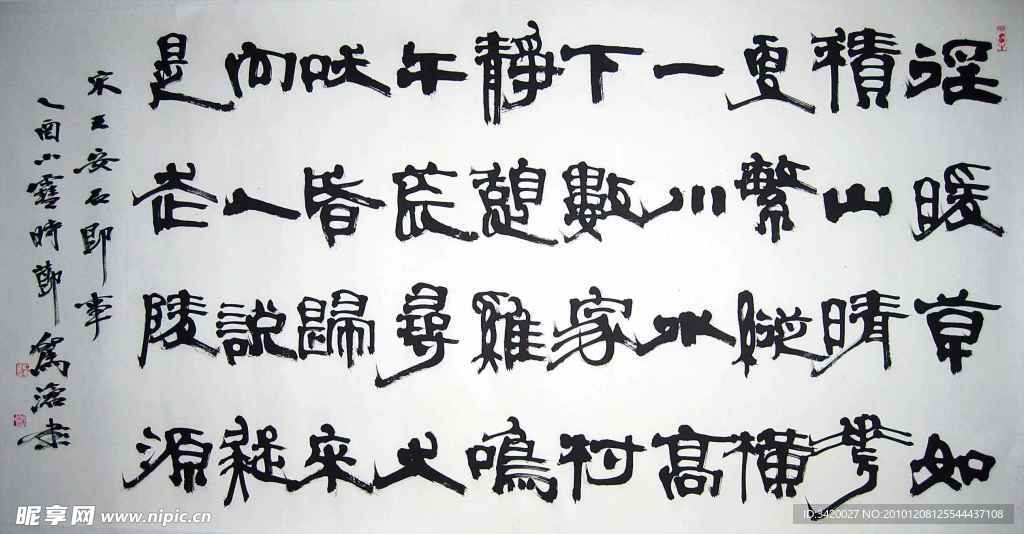 徑暖草如
積山晴華
更繁縱橫
一川水高
下數家村
靜憩雞鳴
午荒尋犬
吠昏歸來
向人說疑
是武陵源
宋王安石即事
乙酉小雪時節
昵享网 www.nipic.cn
ID:3420027 NO:20101208125544437108